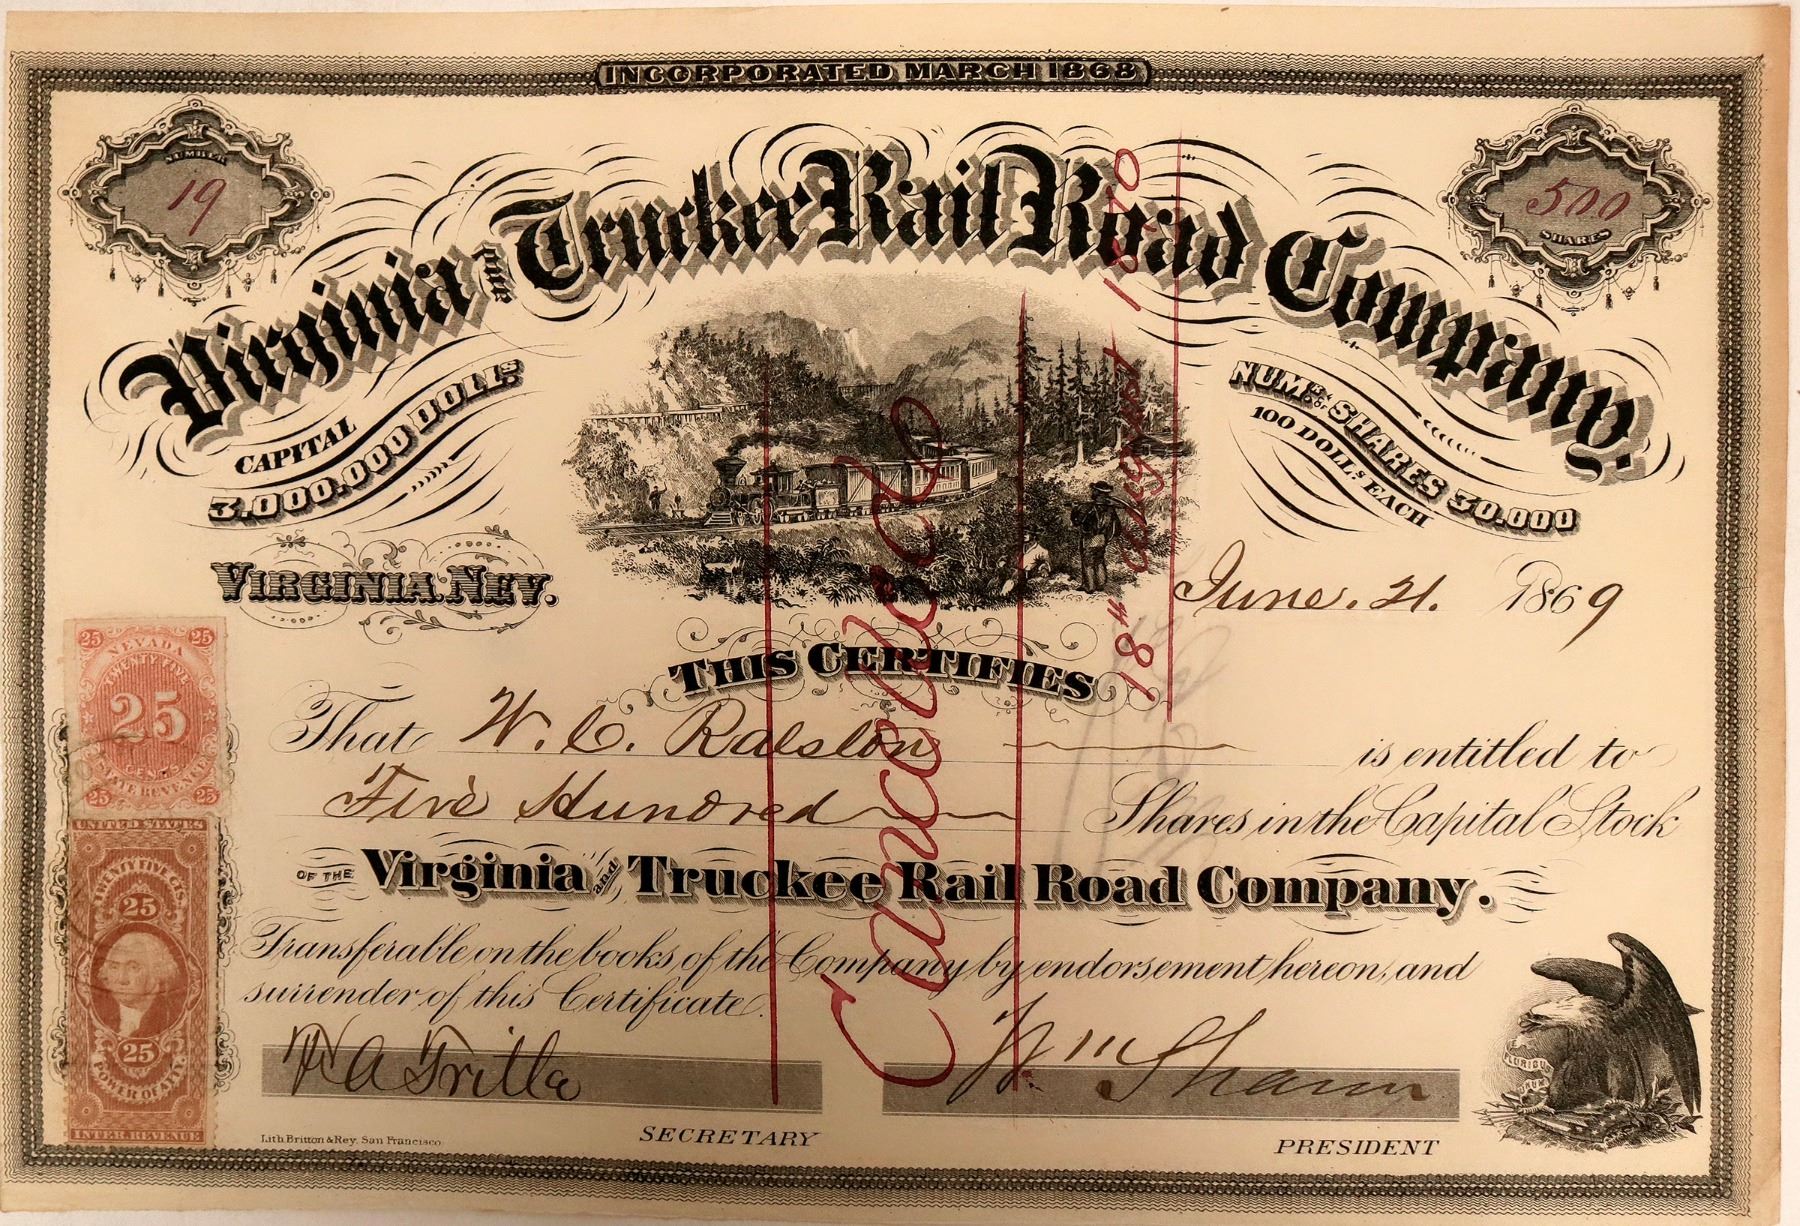 INCORPORATED MARCH 1868
NUMBER
19
500
SHARES
Virginia and Truckee Rail Road Company.
CAPITAL
3,000,000 DOLLS.
NUMR. OF SHARES 30,000
100 DOLLS. EACH
VIRGINIA. NEV.
June. 21. 1869
THIS CERTIFIES
That W. C. Ralston is entitled to
Five Hundred Shares in the Capital Stock
OF THE Virginia and Truckee Rail Road Company.
Transferable on the books of the Company by endorsement hereon, and
surrender of this Certificate.
Wm Sharon
Lith Britton & Rey. San Francisco
SECRETARY
PRESIDENT
Cancelled
18th August 1870
25 NEVADA 25
TWENTY FIVE
25
CENTS
STATE REVENUE
25 25
UNITED STATES
TWENTY FIVE CTS.
25
25
POWER OF ATTY.
INTER. REVENUE
PLURIBUS
UNUM